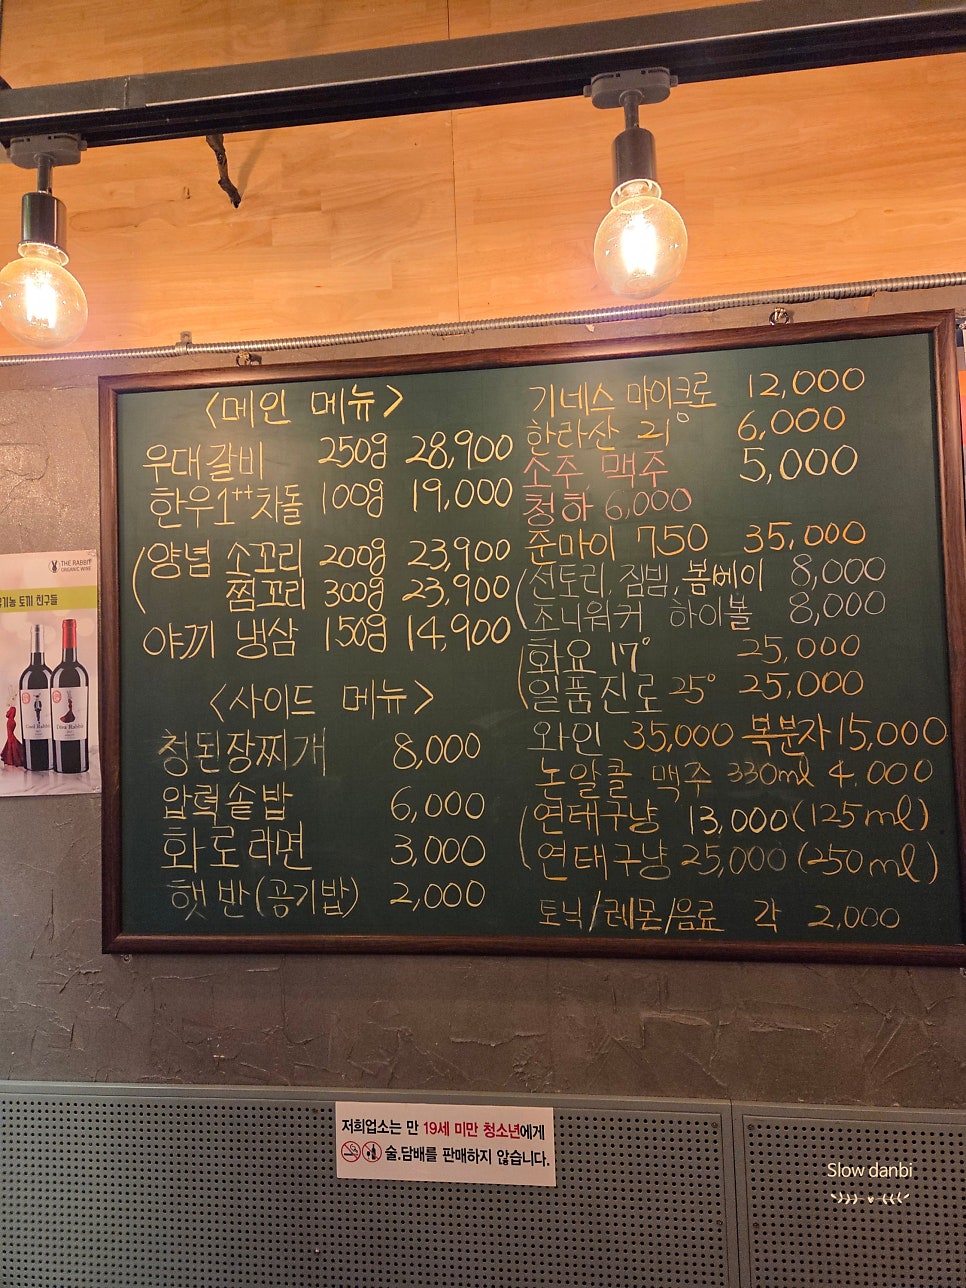 <메인 메뉴>
우대갈비 250g 28,900
한우1++차돌 100g 19,000
(양념 소꼬리 200g 23,900
찜꼬리 300g 23,900
야끼 냉삼 150g 14,900
<사이드 메뉴>
청된장찌개 8,000
압력솥밥 6,000
화로라면 3,000
햇반(공기밥) 2,000
기네스 마이크로 12,000
한라산 21° 6,000
소주, 맥주 5,000
청하 6,000
준마이 750 35,000
(산토리, 짐빔, 봄베이 8,000
조니워커 하이볼 8,000
(화요 17° 25,000
일품진로 25° 25,000
와인 35,000 복분자 15,000
논알콜 맥주 330ml 4,000
(연태구냥 13,000(125ml)
연태구냥 25,000(250ml)
토닉/레몬/음료 각 2,000
THE RABBIT
ORGANIC WINE
토끼 친구들
저희업소는 만 19세 미만 청소년에게
술.담배를 판매하지 않습니다.
Slow danbi